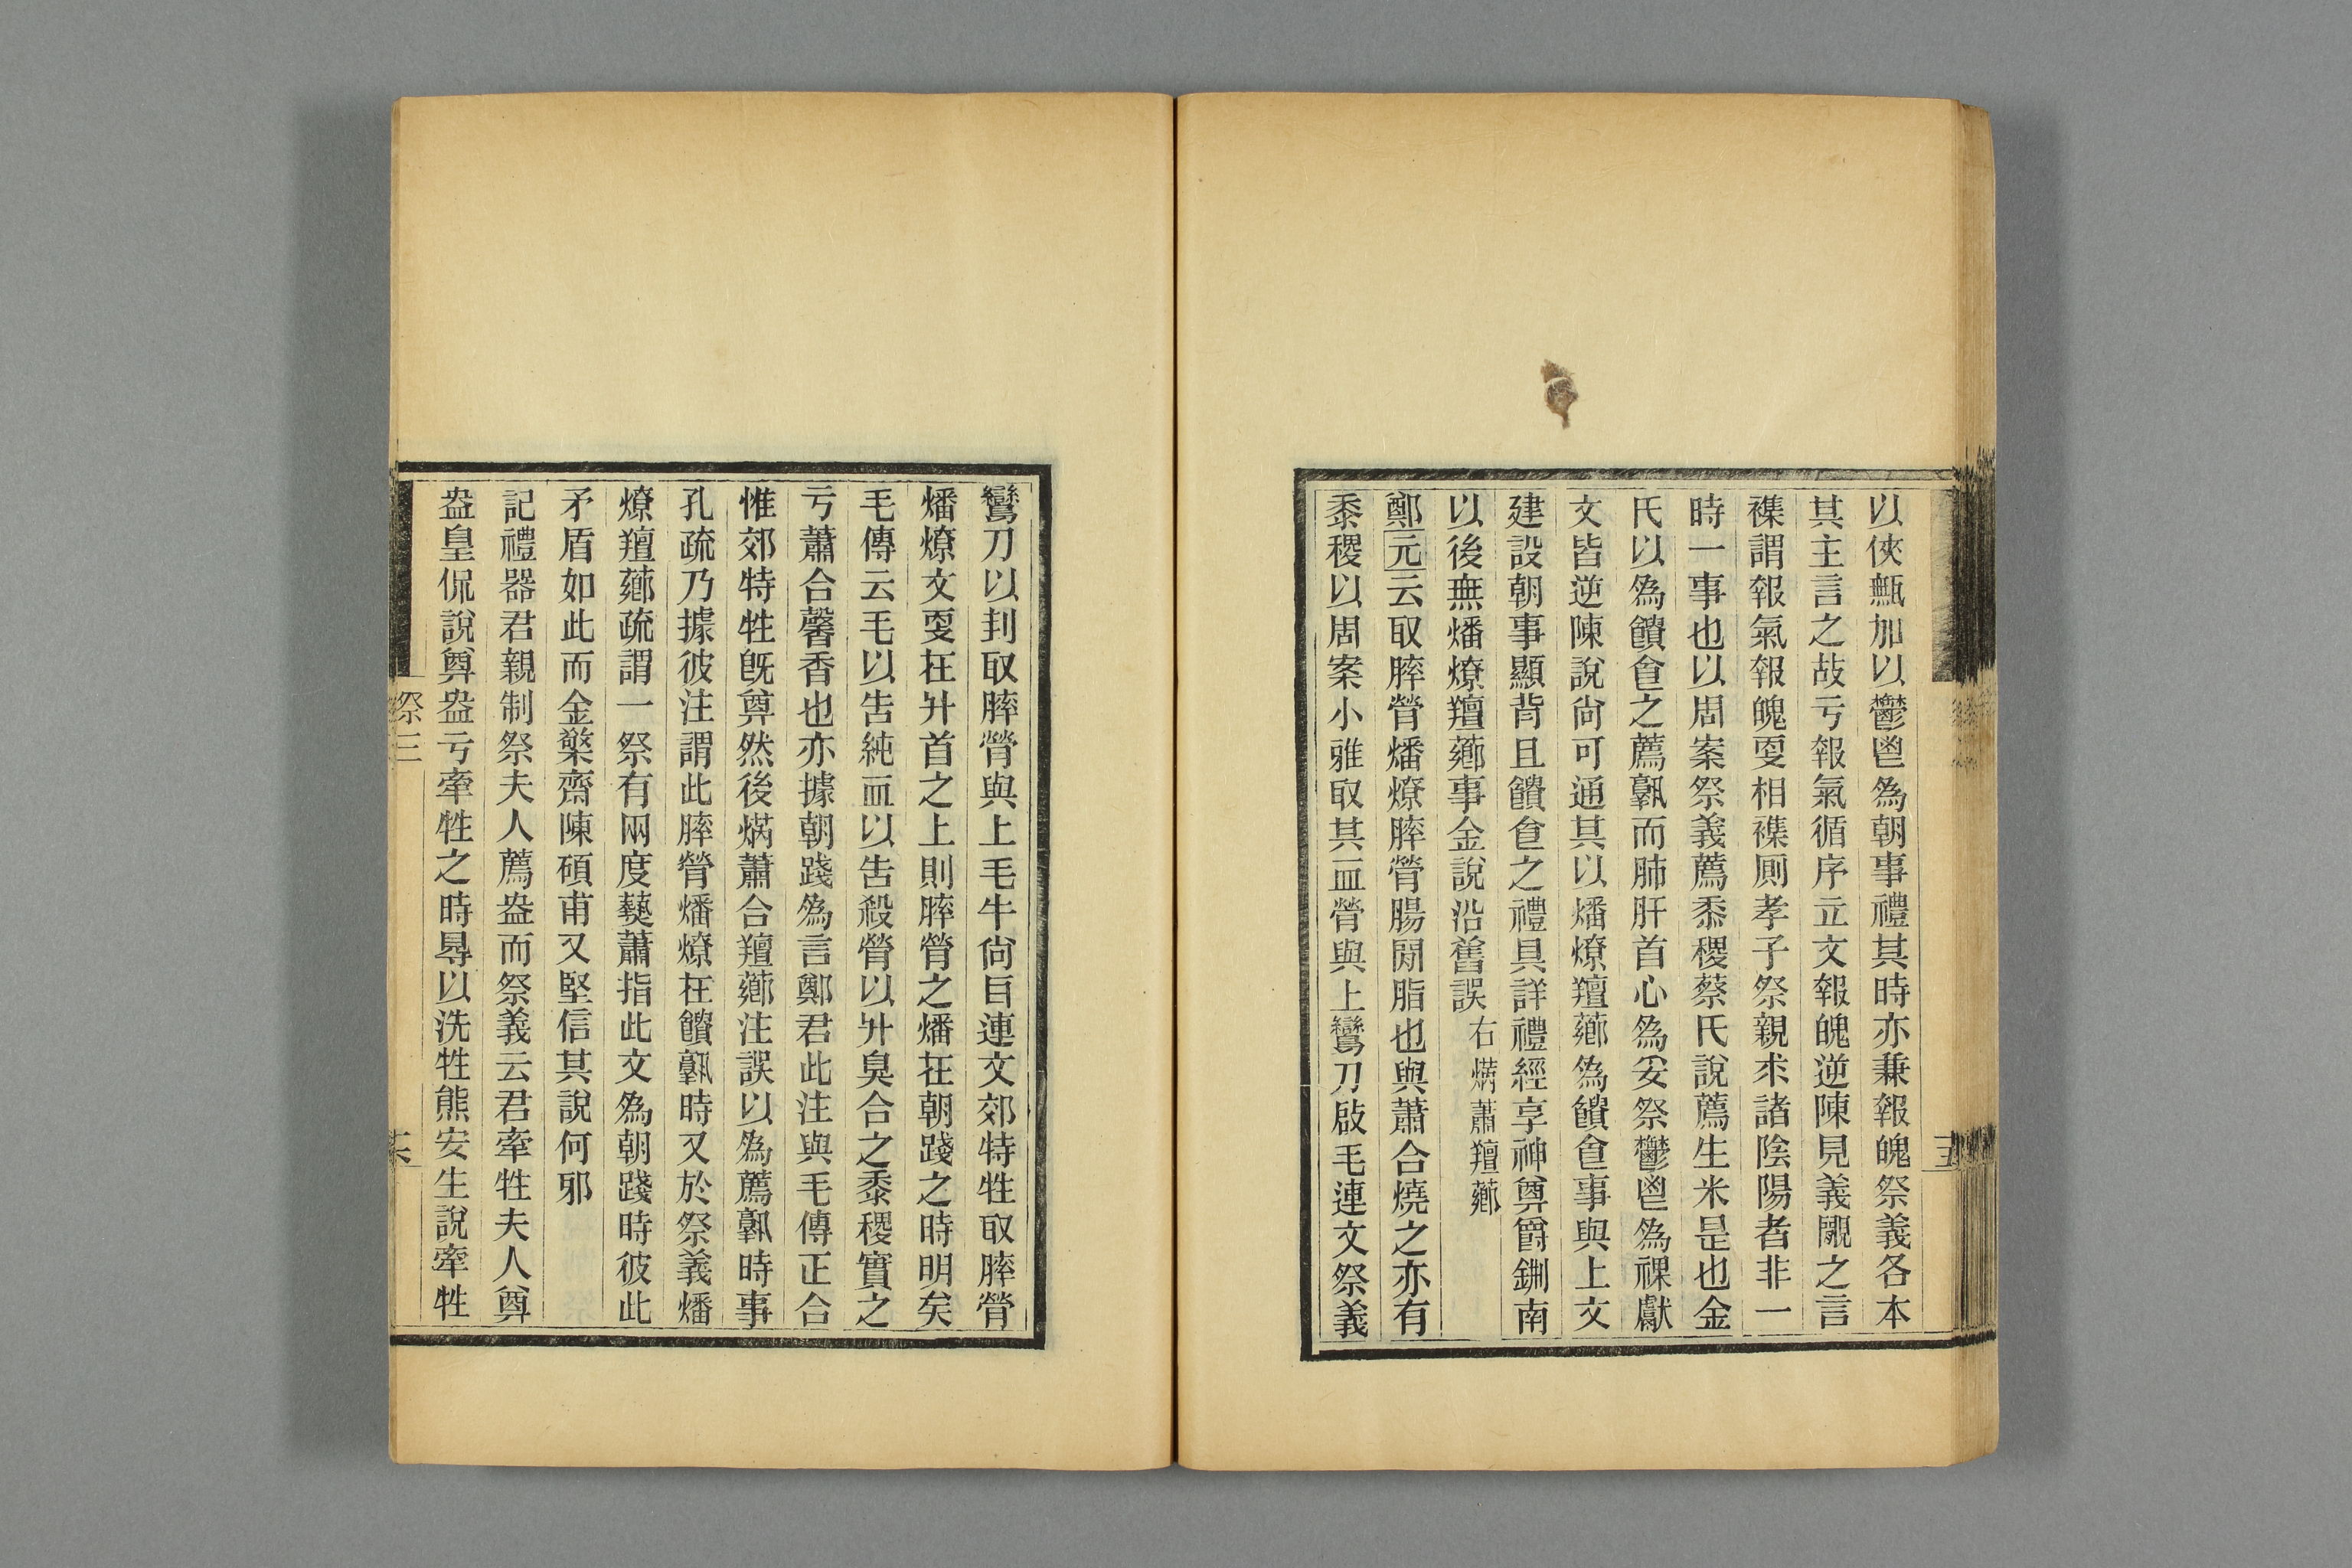 以俠甒加以鬱鬯爲朝事禮其時亦兼報魄祭義各本
其主言之故亏報氣循序立文報魄逆陳見義覵之言
襍謂報氣報魄耎相襍厠孝子祭親求諸陰陽者非一
時一事也以周案祭義薦黍稷蔡氏說薦生米是也金
氏以爲饋食之薦孰而肺肝首心爲妥祭鬱鬯爲祼獻
文皆逆陳說尙可通其以燔燎羶薌爲饋食事與上文
建設朝事顯背且饋食之禮具詳禮經亯神奠爵鉶南
以後無燔燎羶薌事金說沿舊誤右焫蕭羶薌
鄭元云取膟膋燔燎膟膋腸閒脂也與蕭合燒之亦有
黍稷以周案小雅取其血膋與上鸞刀啟毛連文祭義
鸞刀以刲取膟膋與上毛牛尙巨連文郊特牲取膟膋
燔燎文耎在升首之上則膟膋之燔在朝踐之時明矣
毛傳云毛以告純血以告殺膋以升臭合之黍稷實之
亏蕭合馨香也亦據朝踐爲言鄭君此注與毛傳正合
惟郊特牲旣奠然後焫蕭合羶薌注誤以爲薦孰時事
孔疏乃據彼注謂此膟膋燔燎在饋孰時又於祭義燔
燎羶薌疏謂一祭有兩度爇蕭指此文爲朝踐時彼此
矛盾如此而金檠齋陳碩甫又堅信其說何邪
記禮器君親制祭夫人薦盎而祭義云君牽牲夫人奠
盎皇侃說奠盎亏牽牲之時㝵以洗牲熊安生說牽牲
祭三